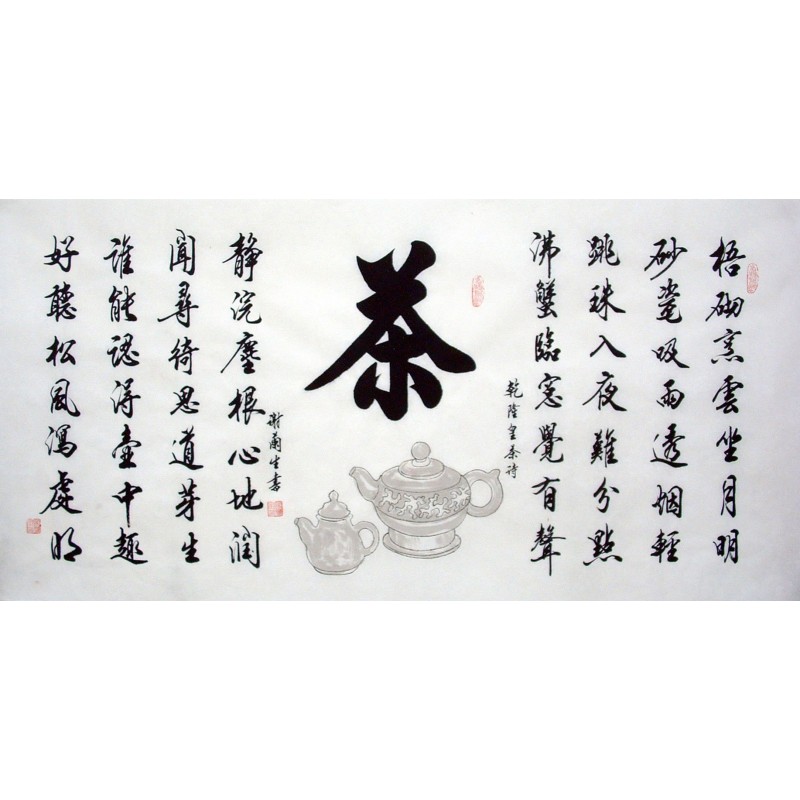 梧砌烹雲坐月明
砂瓷吸雨透烟輕
跳珠入夜難分點
沸蟹臨窓覺有聲
乾隆皇茶詩
茶
謝蘭生書
静浣塵根心地潤
聞尋綺思道芽生
誰能認得壺中趣
好聽松風瀉處明